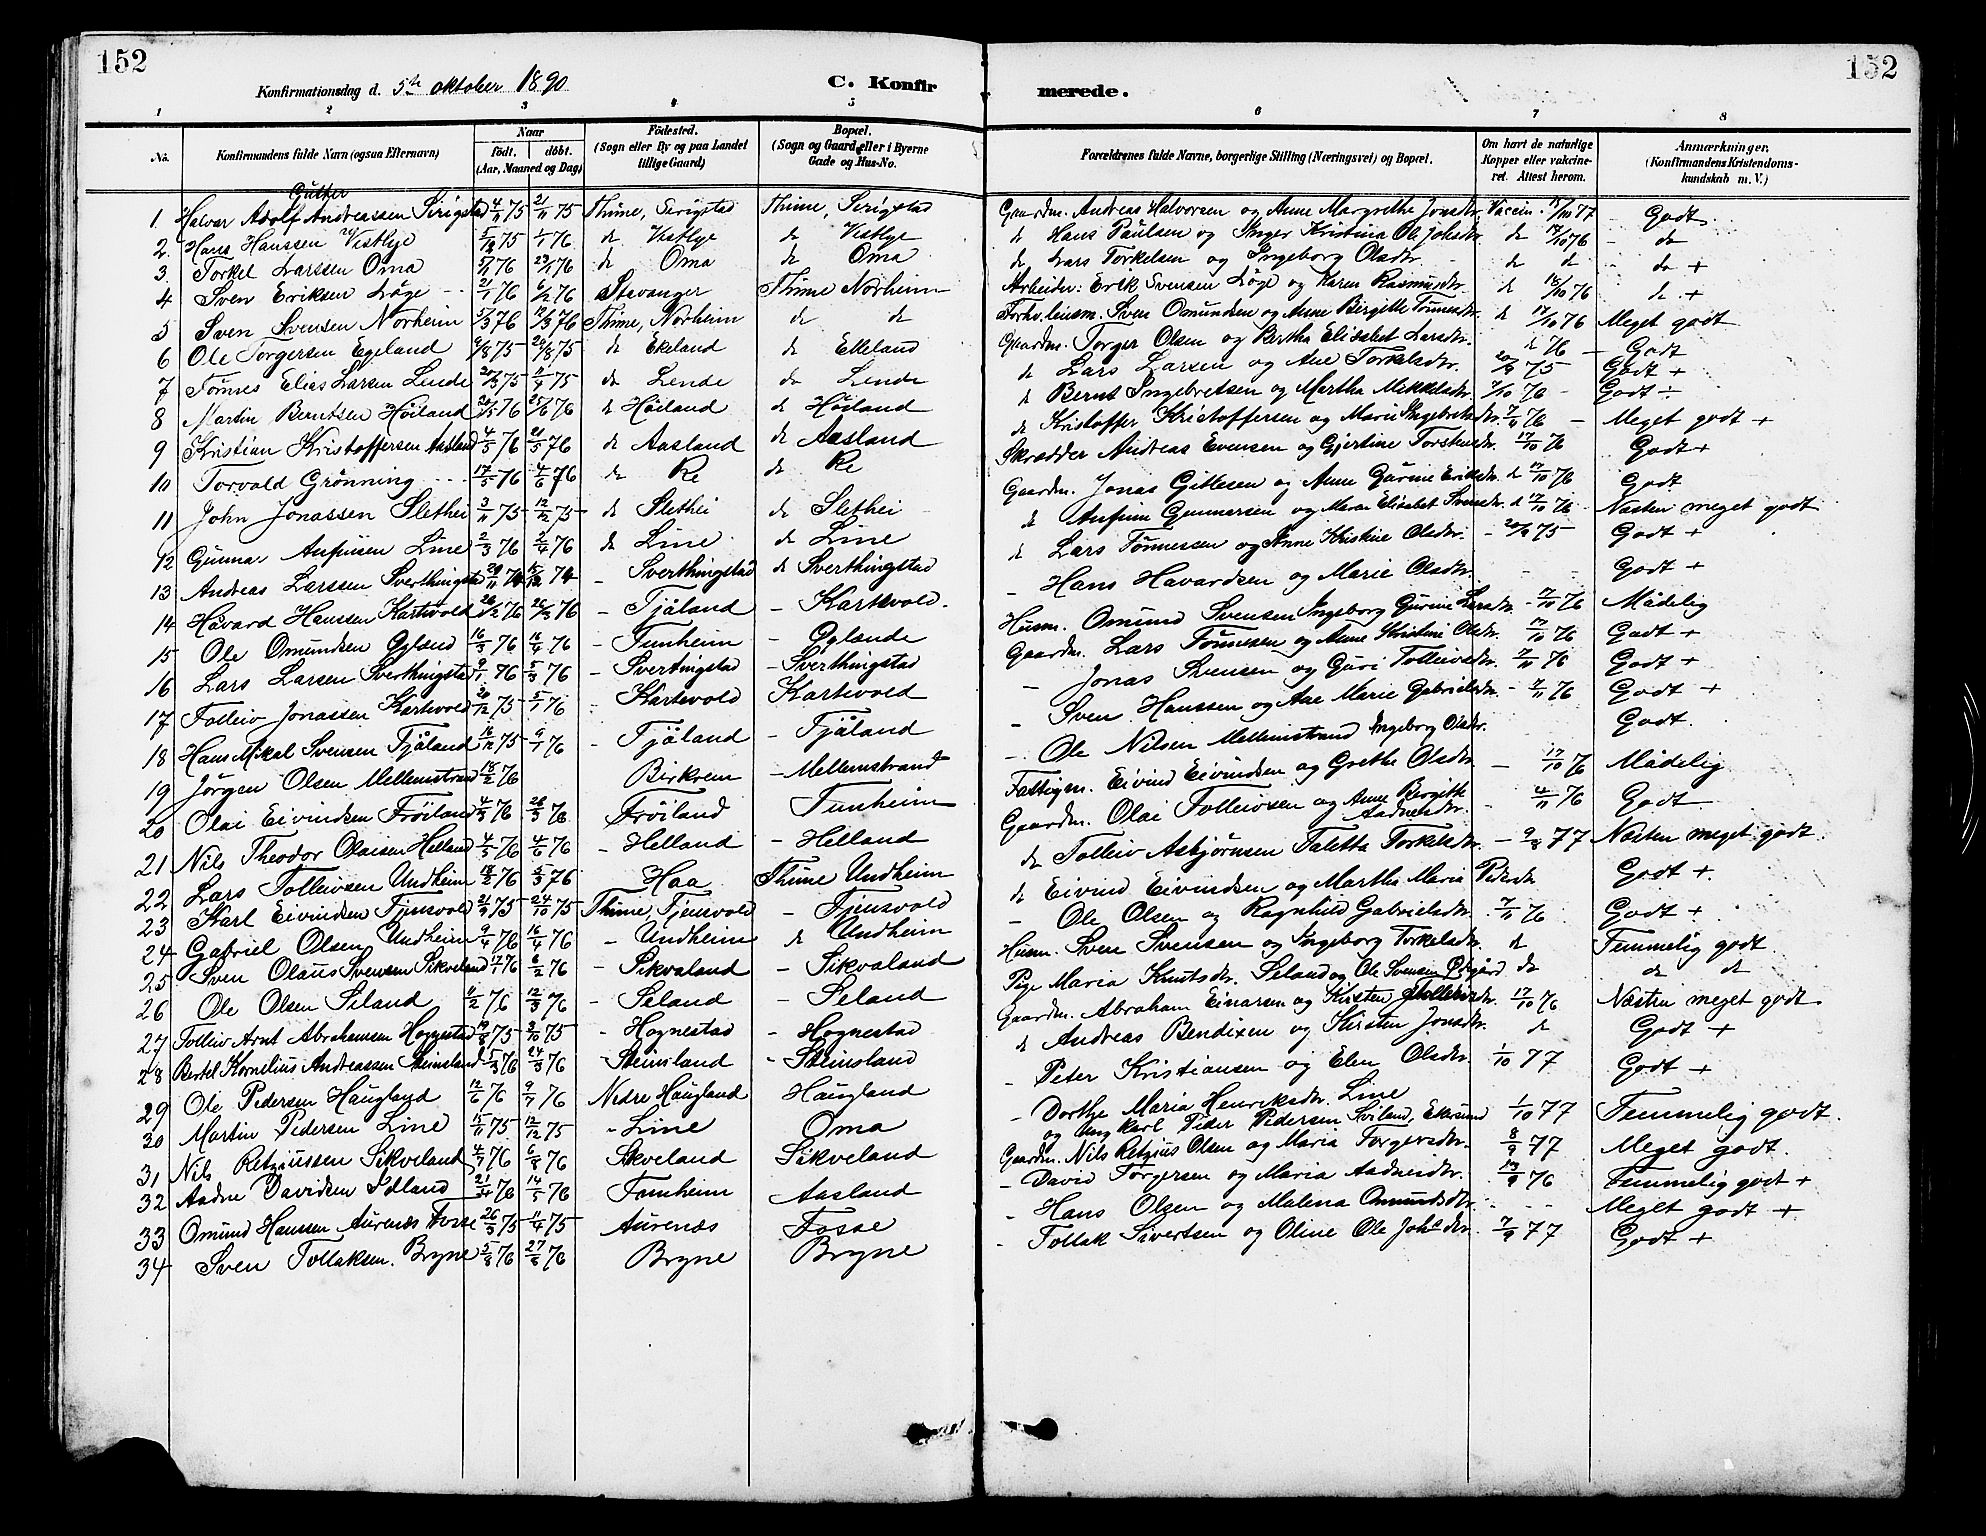 152
152
Konfirmationsdag d. 5te oktober 1890
C. Konfirmerede.
1 2 3 4 5 6 7 8
No. Konfirmandens fulde Navn (ogsaa Efternavn) Naar født. døbt. (Aar, Maaned og Dag) Fødested. (Sogn eller By og paa Landet tillige Gaard) Bopæl. (Sogn og Gaard eller i Byerne Gade og Hus-No. Forældrenes fulde Navne, borgerlige Stilling (Næringsvei) og Bopæl. Om havt de naturlige Kopper eller vakcineret. Attest herom. Anmærkninger. (Konfirmandens Kristendomskundskab m. V.)
Gutter
1 Halvar Adolf Andreassen Serigstad 4/11 75 21/11 75 Thime, Serigstad Thime, Serigstad Gaardm. Andreas Halvorsen og Anne Margrethe Jonsdtr. Vaccin. 15/10 77 Godt
2 Hans Hanssen Vestlye 5/12 75 1/1 76 do Vestlye do Vestlye do Hans Paulsen og Inger Kristina Ole Johsdtr. do 17/10 76 do
3 Torkel Larssen Oma 5/1 76 23/1 76 do Oma do Oma do Lars Torkelsen og Ingeborg Olsdtr. do do do +
4 Sven Eriksen Løge 21/1 76 6/2 76 Stavanger Thime Norheim Arbeider: Erik Svensen Løge og Karen Rasmusdtr. do 18/10 76 do +
5 Sven Svensen Norheim 5/3 76 12/3 76 Thime, Norheim do do Forhv. leinsm. Sven Omundsen og Anne Bergitte Tønnesdtr. do 17/10 76 Meget godt
6 Ole Torgersen Egeland /8 75 /8 75 do Ekeland do Ekeland Gaardm. Torger Olsen og Bertha Elisabet Larsdtr. do 76 Godt
7 Tønnes Elias Larsen Lende 20/3 75 11/4 75 do Lende do Lende do Lars Larsen og Ane Torkelsdtr. 75 Godt +
8 Martin Berntsen Høiland 28/5 76 25/6 76 do Høiland do Høiland do Bernt Ingebretsen og Martha Mikkelsdtr. 7/10 76 Godt
9 Kristian Kristoffersen Aasland 4/5 76 21/5 76 do Aasland do Aasland do Kristoffer Kristoffersen og Marie Ingebretsdtr. 7/11 76 Meget godt +
10 Torvald Grønning 17/5 76 4/6 76 do Re do Re Skrædder Andreas Evensen og Gjertine Torstensdtr. 17/10 76 Godt +
11 John Jonassen Slethei 3/11 75 12/12 75 do Slethei do Slethei Gaardm. Jonas Gitlesen og Anne Gurine Eriksdtr. do 17/10 76 Godt
12 Gunnar Anfinsen Line 2/3 76 2/4 76 do Line do Line do Anfinn Gunnarsen og Maren Elisabet Svensdtr. do 17/10 76 Næsten meget godt
13 Andreas Larssen Sverthingstad 29/11 74 /12 74 - Sverthingstad do Sverthingstad do Lars Tønnessen og Anne Kristine Olsdtr. - 75 Godt +
14 Håvard Hanssen Kartevold 26/2 76 76 - Tjåland - Kartevold. - Hans Havardsen og Marie Olsdtr. - - Godt +
15 Ole Omundsen Øglænd 16/3 76 16/4 76 - Tunheim - Øglænde Husm. Omund Svensen Ingeborg Gurine Larsdtr. - 17/10 76 Mådelig
16 Lars Larsen Sverthingstad 9/1 76 5/3 76 - Sverthingstad - Sverthingstad Gaardm. Lars Tønnesen og Anne Kristine Olsdtr. 17/10 76 Godt +
17 Tolleiv Jonassen Kartevold /12 75 5/1 76 - Kartevold - Kartevold - Jonas Svensen og Guri Tolleivsdtr. 7/11 76 Godt +
18 Hans Mikal Svensen Tjåland 16/12 75 9/1 76 - Tjåland - Tjåland - Sven Hanssen og Ane Marie Gabrielsdtr. - 7/11 76 Godt +
19 Jørgen Olsen Mellemstrand 18/2 76 Birkrem - Mellemstrand - Ole Nilsen Mellemstrand Ingeborg Olsdtr. Godt.
20 Olai Eivindsen Frøiland 4/3 76 26/3 76 Frøiland Tunheim Fattigm. Eivind Eivindsen og Grethe Olsdtr. - 17/10 76 Mådelig
21 Nils Theodor Olaisen Helland 4/5 76 4/6 76 - Helland - Helland Gaardm. Olai Tolleivsen og Anne Bergitte Aadnesdtr. - 4/11 76 Godt
22 Lars Tolleivsen Undheim 12/2 76 5/3 76 Haa Thime Undheim do Tolleiv Asbjørnsen Taletta Torkelsdtr. - 77 Næsten meget godt.
23 Karl Eivindsen Tjensvold 21/9 75 24/10 75 Thime, Tjensvold - Tjensvold do Eivind Eivindsen og Martha Maria Pedersdtr Godt +.
24 Gabriel Olsen Undheim 9/4 76 16/4 76 - Undheim do Undheim - Ole Olsen og Ragnhild Gabrielsdtr. 7/11 76 Godt +
25 Sven Olaus Svensen Sikveland 17/1 76 6/2 76 - Sikvaland - Sikvaland Husm. Sven Svensen og Ingeborg Torkelsdtr. do Temmelig godt.
26 Ole Olsen Seland 11/2 76 12/3 76 - Seland - Seland Pige Maria Knutsdtr. Seland og Ole Svensen do do do
27 Tolleiv Arnt Abrahamsen Hognestad 19/8 75 3/10 75 - Hognestad - Hognestad Gaardm. Abraham Einarsen og Kirsten Tolleivsdtr. 17/10 76 Næsten meget godt.
28 Bertel Kornelius Andreassen Steinsland 5/3 76 24/3 76 - Steinsland - Steinsland do Andreas Bendixen og Kirsten Jonsdtr. do Godt +
29 Ole Pedersen Haugland 12/6 76 9/7 76 Nedre Haugland Haugland - Peter Kristiansen og Elen Olsdtr. 1/10 77 Godt +
30 Martin Pedersen Line 15/11 75 12/12 75 - Line Oma - Dorthe Maria Henriksdtr. Line og Ung Karl Peder Pedersen Sviland, Ekersund 1/10 77 Temmelig godt.
31 Nils Retziussen Sikveland 4/7 76 6/8 76 Skveland Sikveland Gaardm. Nils Retzius Olsen og Maria Torgersdtr. 8/9 77 Meget godt.
32 Aadne Davidsen Idland 21/4 76 14/5 76 Tunheim Aasland - David Torgersen og Maria Aadneidtr. 13/9 76 Temmelig godt +
33 Omund Hanssen Aurenæs Fosse 26/3 75 11/4 75 Aurenæs Fosse - Hans Olsen og Malena Omundsdtr. Meget godt +
34 Sven Tollaksen. Bryne 5/8 76 27/8 76 Bryne Bryne - Tollak Sivertsen og Oline Ole Johsdtr. 7/9 77 Godt +